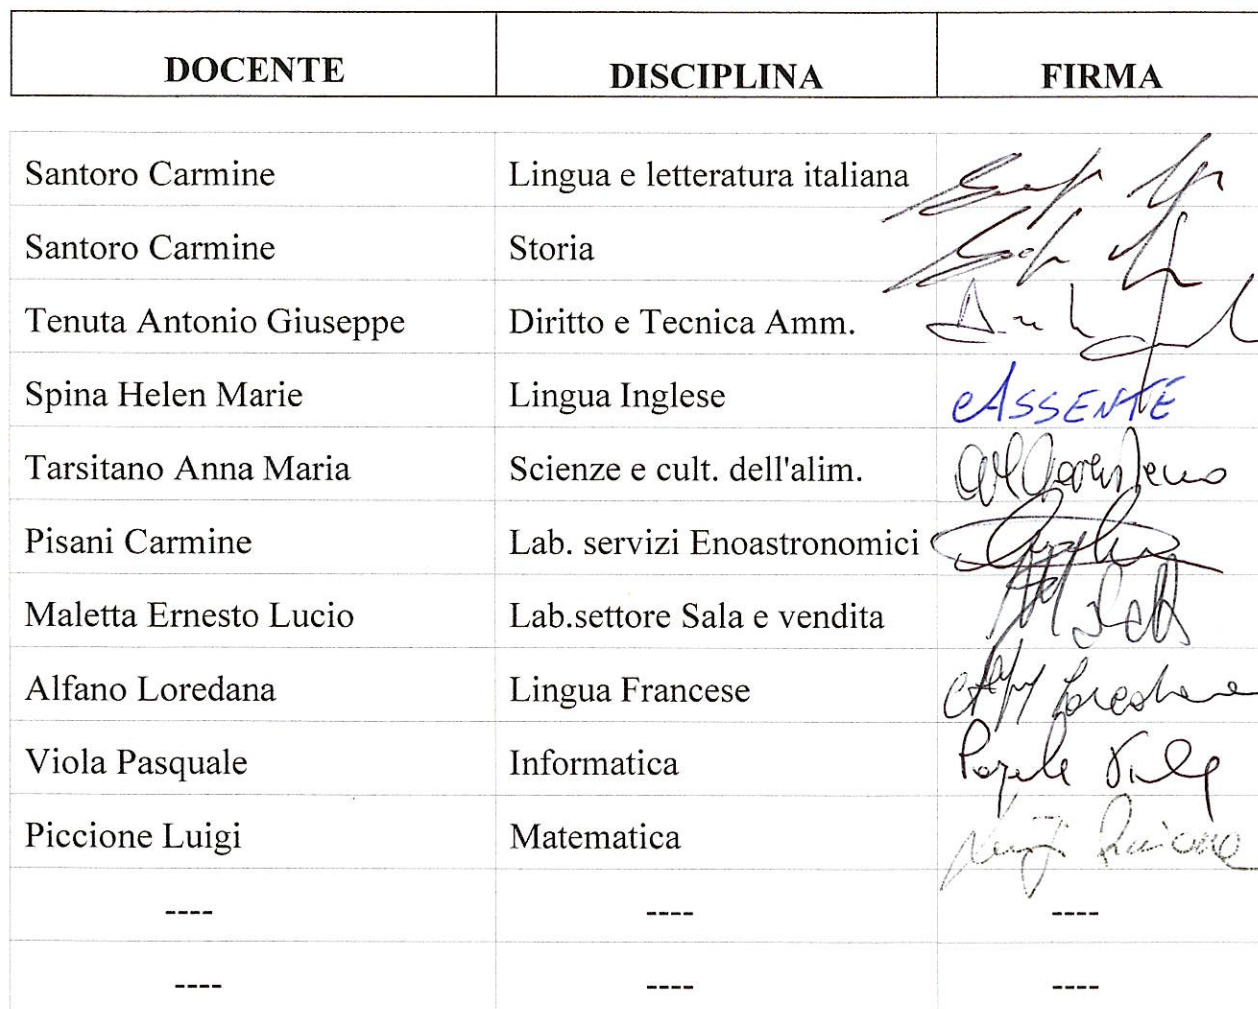 DOCENTE DISCIPLINA FIRMA
Santoro Carmine Lingua e letteratura italiana
Santoro Carmine Storia
Tenuta Antonio Giuseppe Diritto e Tecnica Amm.
Spina Helen Marie Lingua Inglese ASSENTE
Tarsitano Anna Maria Scienze e cult. dell'alim.
Pisani Carmine Lab. servizi Enoastronomici
Maletta Ernesto Lucio Lab.settore Sala e vendita
Alfano Loredana Lingua Francese
Viola Pasquale Informatica
Piccione Luigi Matematica
---- ---- ----
---- ---- ----